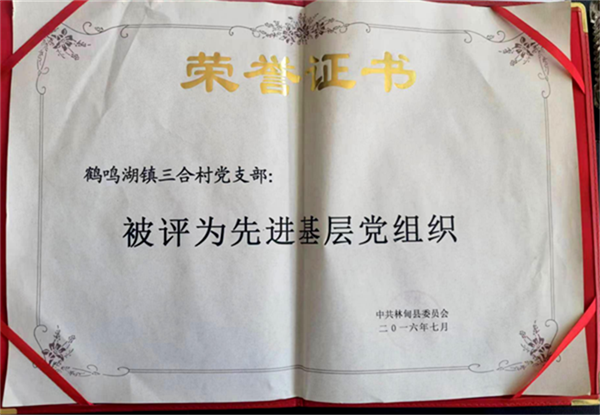 荣誉证书
鹤鸣湖镇三合村党支部：
被评为先进基层党组织
中共林甸县委员会
二〇一六年七月